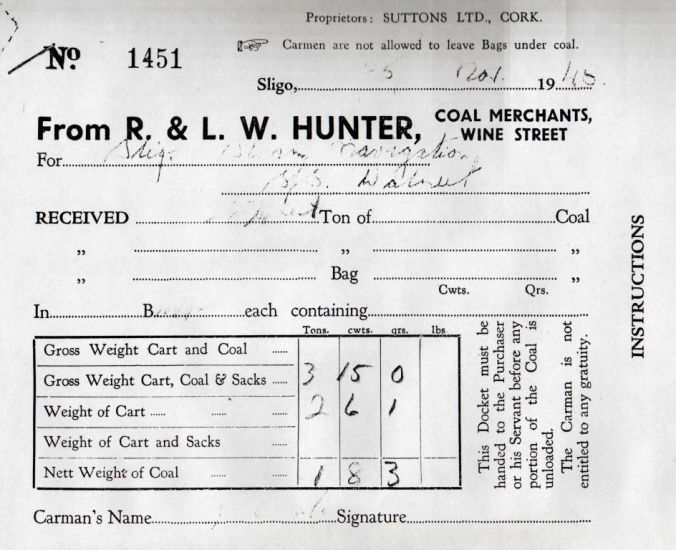 Proprietors: SUTTONS LTD., CORK.
Nº 1451
Carmen are not allowed to leave Bags under coal.
Sligo, 5 Nov. 19
From R. & L. W. HUNTER, COAL MERCHANTS, WINE STREET
For Sligo Steam Navigation
S/S.
RECEIVED Ton of Coal
„ „ „
„ Bag „
Cwts. Qrs.
In B each containing
Tons. cwts. qrs. lbs
Gross Weight Cart and Coal
Gross Weight Cart, Coal & Sacks 3 15 0
Weight of Cart 2 6 1
Weight of Cart and Sacks
Nett Weight of Coal 1 8 3
This Docket must be
handed to the Purchaser
or his Servant before any
portion of the Coal is
unloaded.
The Carman is not
entitled to any gratuity.
INSTRUCTIONS
Carman's Name Signature